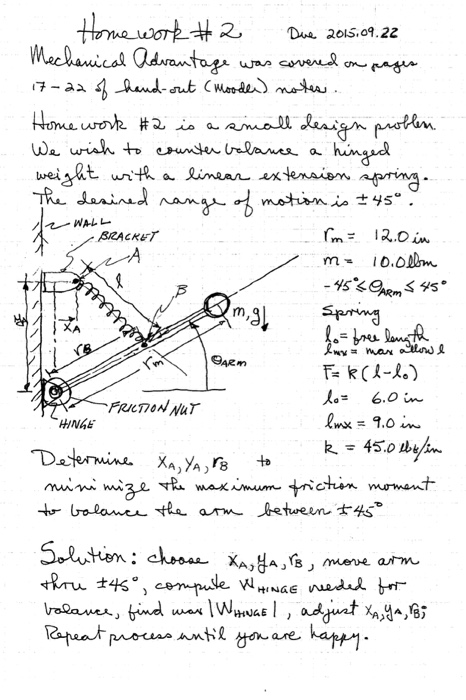 Homework # 2 Due 2015.09.22
Mechanical Advantage was covered on pages
17-22 of hand-out (Moodle) notes.
Homework #2 is a small design problem.
We wish to counter balance a hinged
weight with a linear extension spring.
The desired range of motion is ±45°.
WALL
BRACKET
A
l
B
m,g↓
yA
xA
rB
rm
θARM
FRICTION NUT
HINGE
rm = 12.0 in
m = 10.0 lbm
-45° ≤ θARM ≤ 45°
Spring
lo = free length
lmx = max allow l
F = k (l - lo)
lo = 6.0 in
lmx = 9.0 in
k = 45.0 lbf/in
Determine xA, yA, rB to
minimize the maximum friction moment
to balance the arm between ±45°
Solution: choose xA, yA, rB, move arm
thru ±45°, compute WHINGE needed for
balance, find max |WHINGE|, adjust xA, yA, rB;
Repeat process until you are happy.